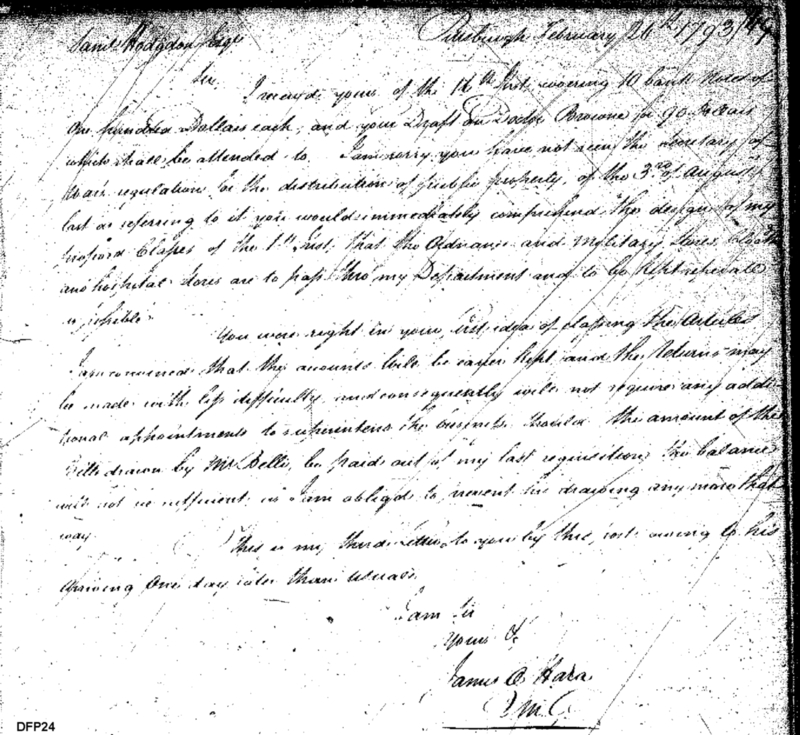 Pittsburgh February 26th 1793
Saml Hodgdon Esqr
Sir
I received yours of the 16th Inst. covering 10 bank Notes of
One hundred Dollars each, and your Draft on Doctor Browne for 90 Dollars
which shall be attended to. I am sorry you have not seen the Secretary of
Wars regulation for the distribution of public property, of the 3rd of August
last as referring to it you would immediately comprehend the design of my
proposed Classes of the 1st Inst. that the Ordnance and Military Stores, Cloath
and hospital Stores are to pass thro my Department and to be kept seperate
as possible
You were right in your first idea of classing the Articles
I am convinced that the accounts will be easier kept and the Returns may
be made with less difficulty and consequently will not require any addi
tional appointments to superintend the business. Should the amount of the
Bills drawn by Mr Belli, be paid out of my last requisition the balance
will not be sufficient, as I am obliged to prevent his drawing any more that
way.
This is my third Letter to you by this post owing to his
arriving One day later than usual.
I am Sir
Yours &c
James O Hara
Q M G
DFP24